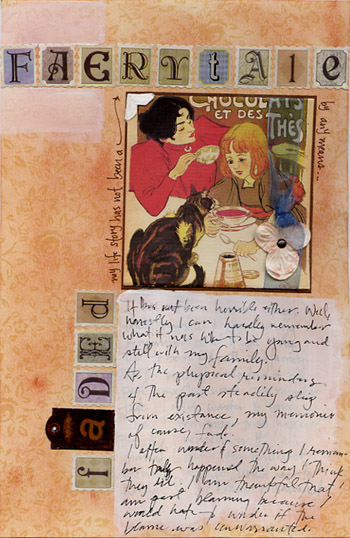 FAERYtale
my life story has not been a
CHOCOLATS
ET DES
THÉS
by any means...
faded
It has not been horrible either. Well,
honestly I can hardly remember
what it was like to be young and
still with my family.
As the physical reminders
of the past steadily slip
from existance, my memories
of course, fade.
I often wonder if something I remem-
ber truly happened the way I think
they did. I am thankful that I
am past blaming because I
would hate to wonder if the
blame was unwarranted.